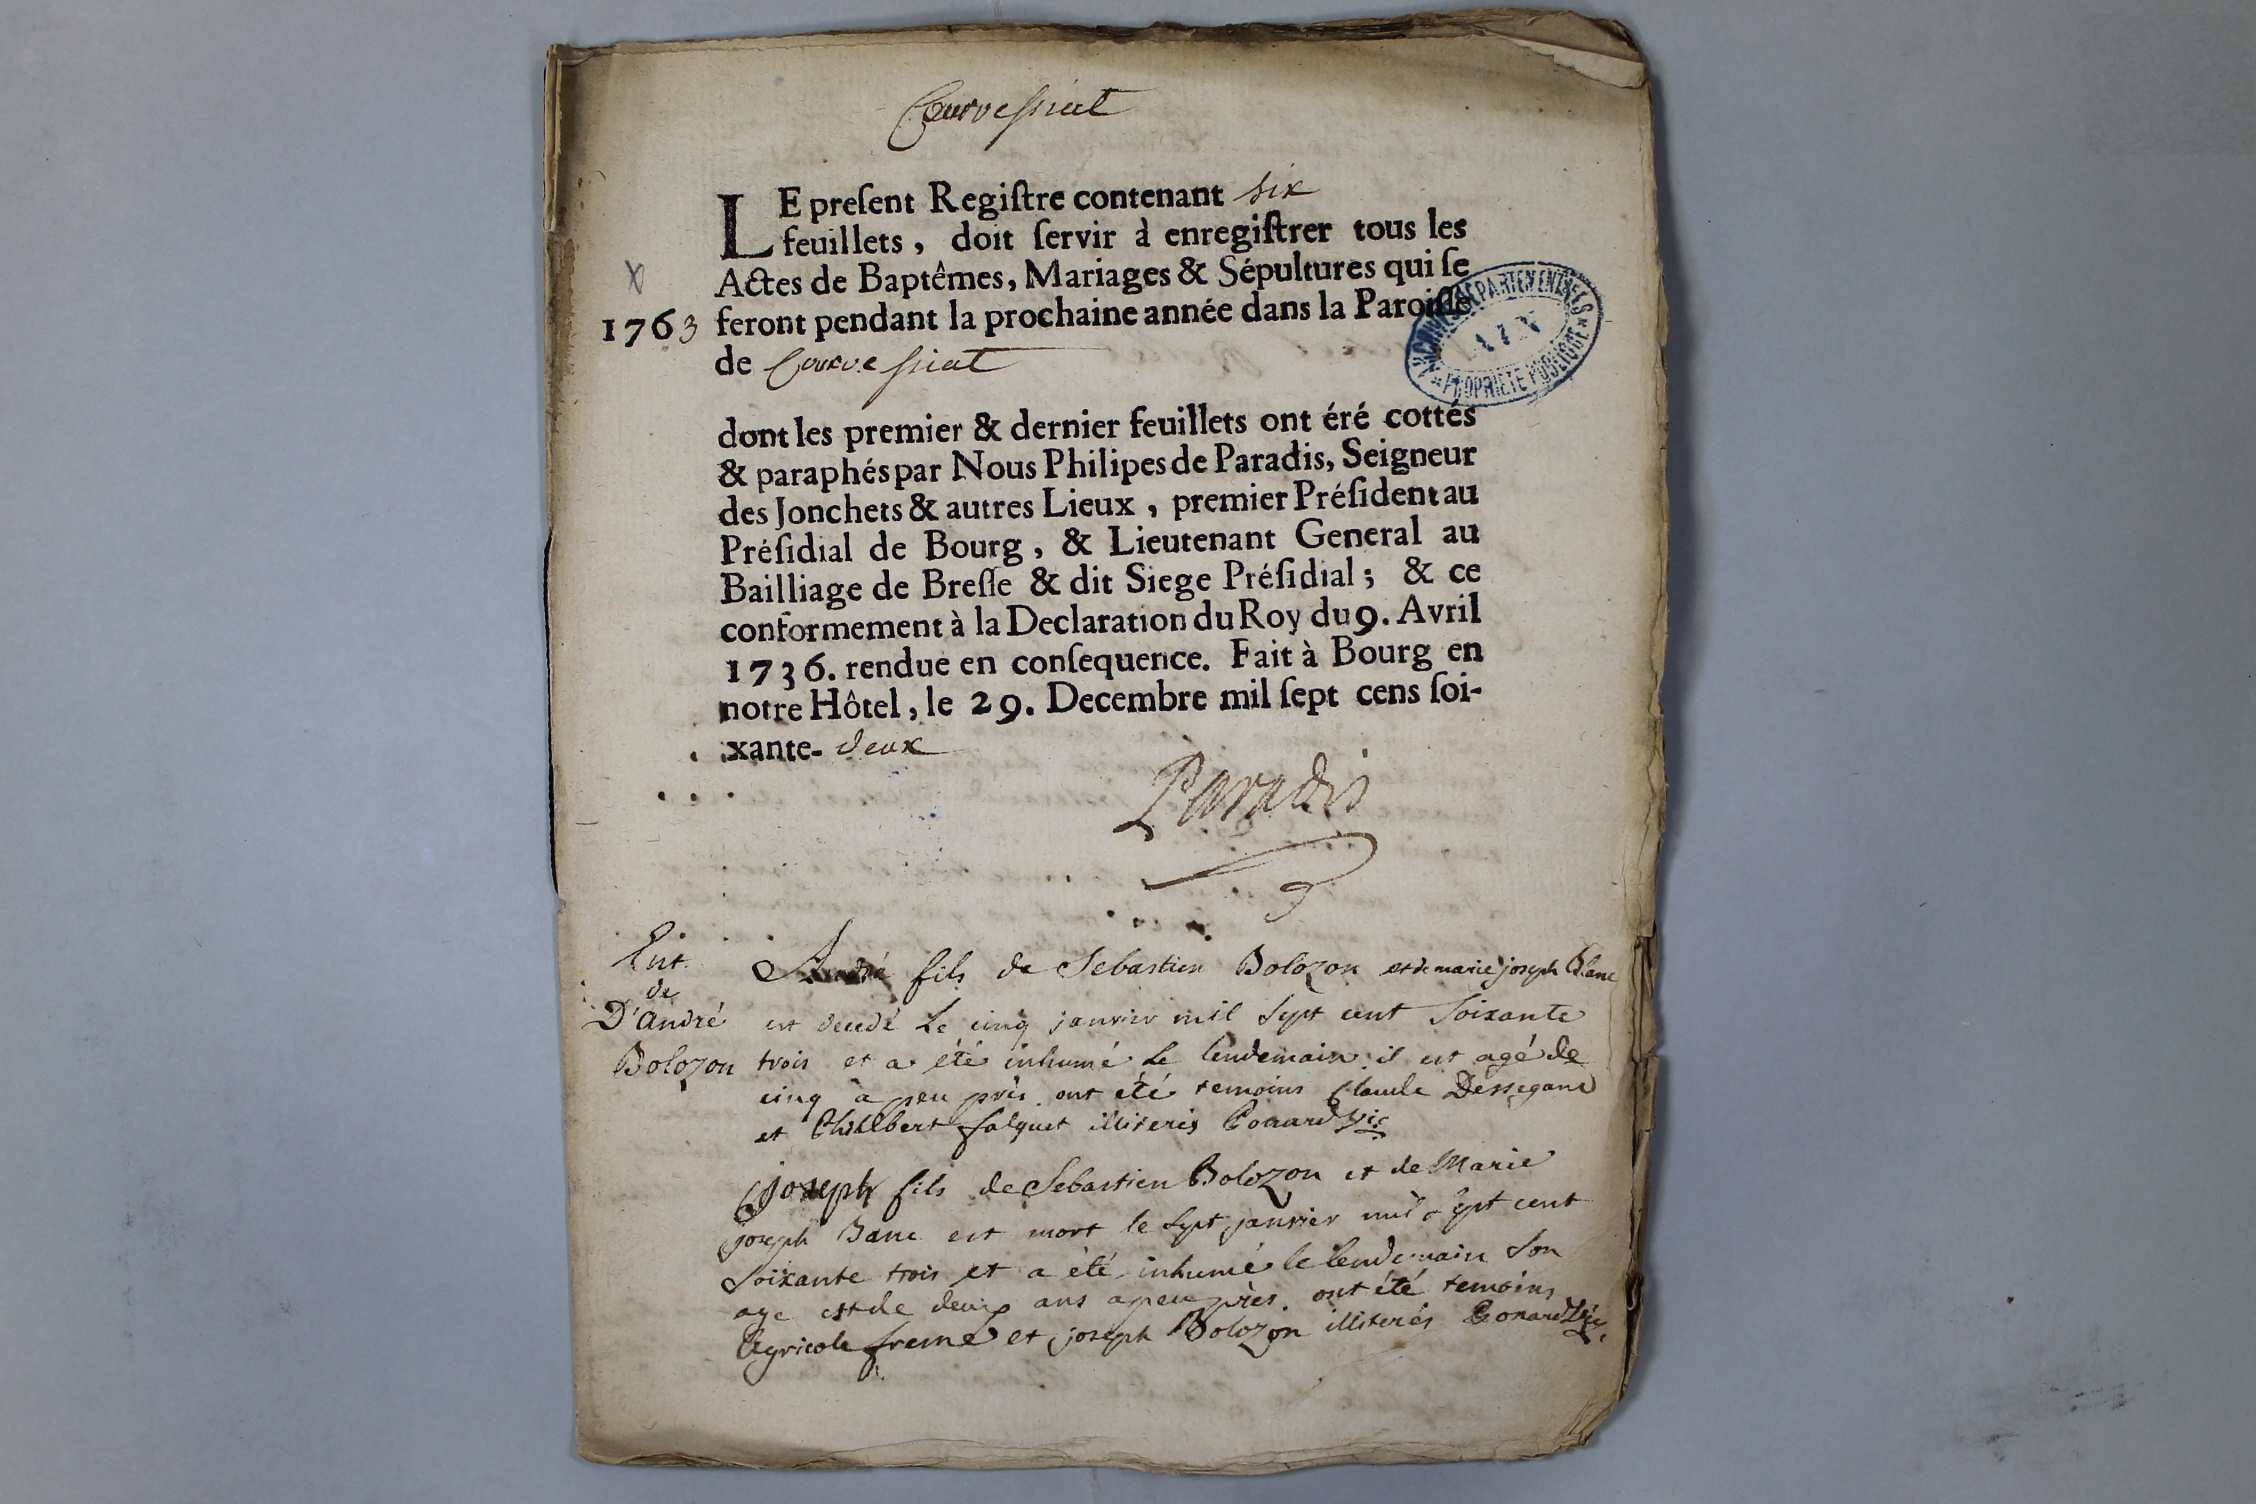 Courvessiat
LE preſent Regiſtre contenant six
feuillets, doit ſervir à enregiſtrer tous les
Actes de Baptêmes, Mariages & Sépultures qui ſe
1763 feront pendant la prochaine année dans la Paroiſſe
de Courvessiat
ARCHIVES DÉPARTEMENTALES
AIN
PROPRIÉTÉ PUBLIQUE
dont les premier & dernier feuillets ont éré cottés
& paraphés par Nous Philipes de Paradis, Seigneur
des Jonchets & autres Lieux, premier Préſident au
Préſidial de Bourg, & Lieutenant General au
Bailliage de Breſſe & dit Siege Préſidial; & ce
conformement à la Declaration du Roy du 9. Avril
1736. rendue en conſequence. Fait à Bourg en
notre Hôtel, le 29. Decembre mil ſept cens ſoi-
xante- deux
Paradis
Ent.
de
D'andré
Bolozon
André fils de Sebastien Bolozon et de marie joseph Blanc
est decedé le cinq janvier mil sept cent soixante
trois et a été inhumé le lendemain il est agé de
cinq à peu près. ont été temoins Claude Dessegane
et Philibert falquet illiterés Gonard vic
joseph fils de Sebastien Bolozon et de Marie
joseph Banc est mort le sept janvier mil sept cent
soixante trois et a été inhumé le lendemain son
age est de deux ans apeu près. ont été temoins
Agricole freme et joseph Bolozon illiterés Gonard vic.